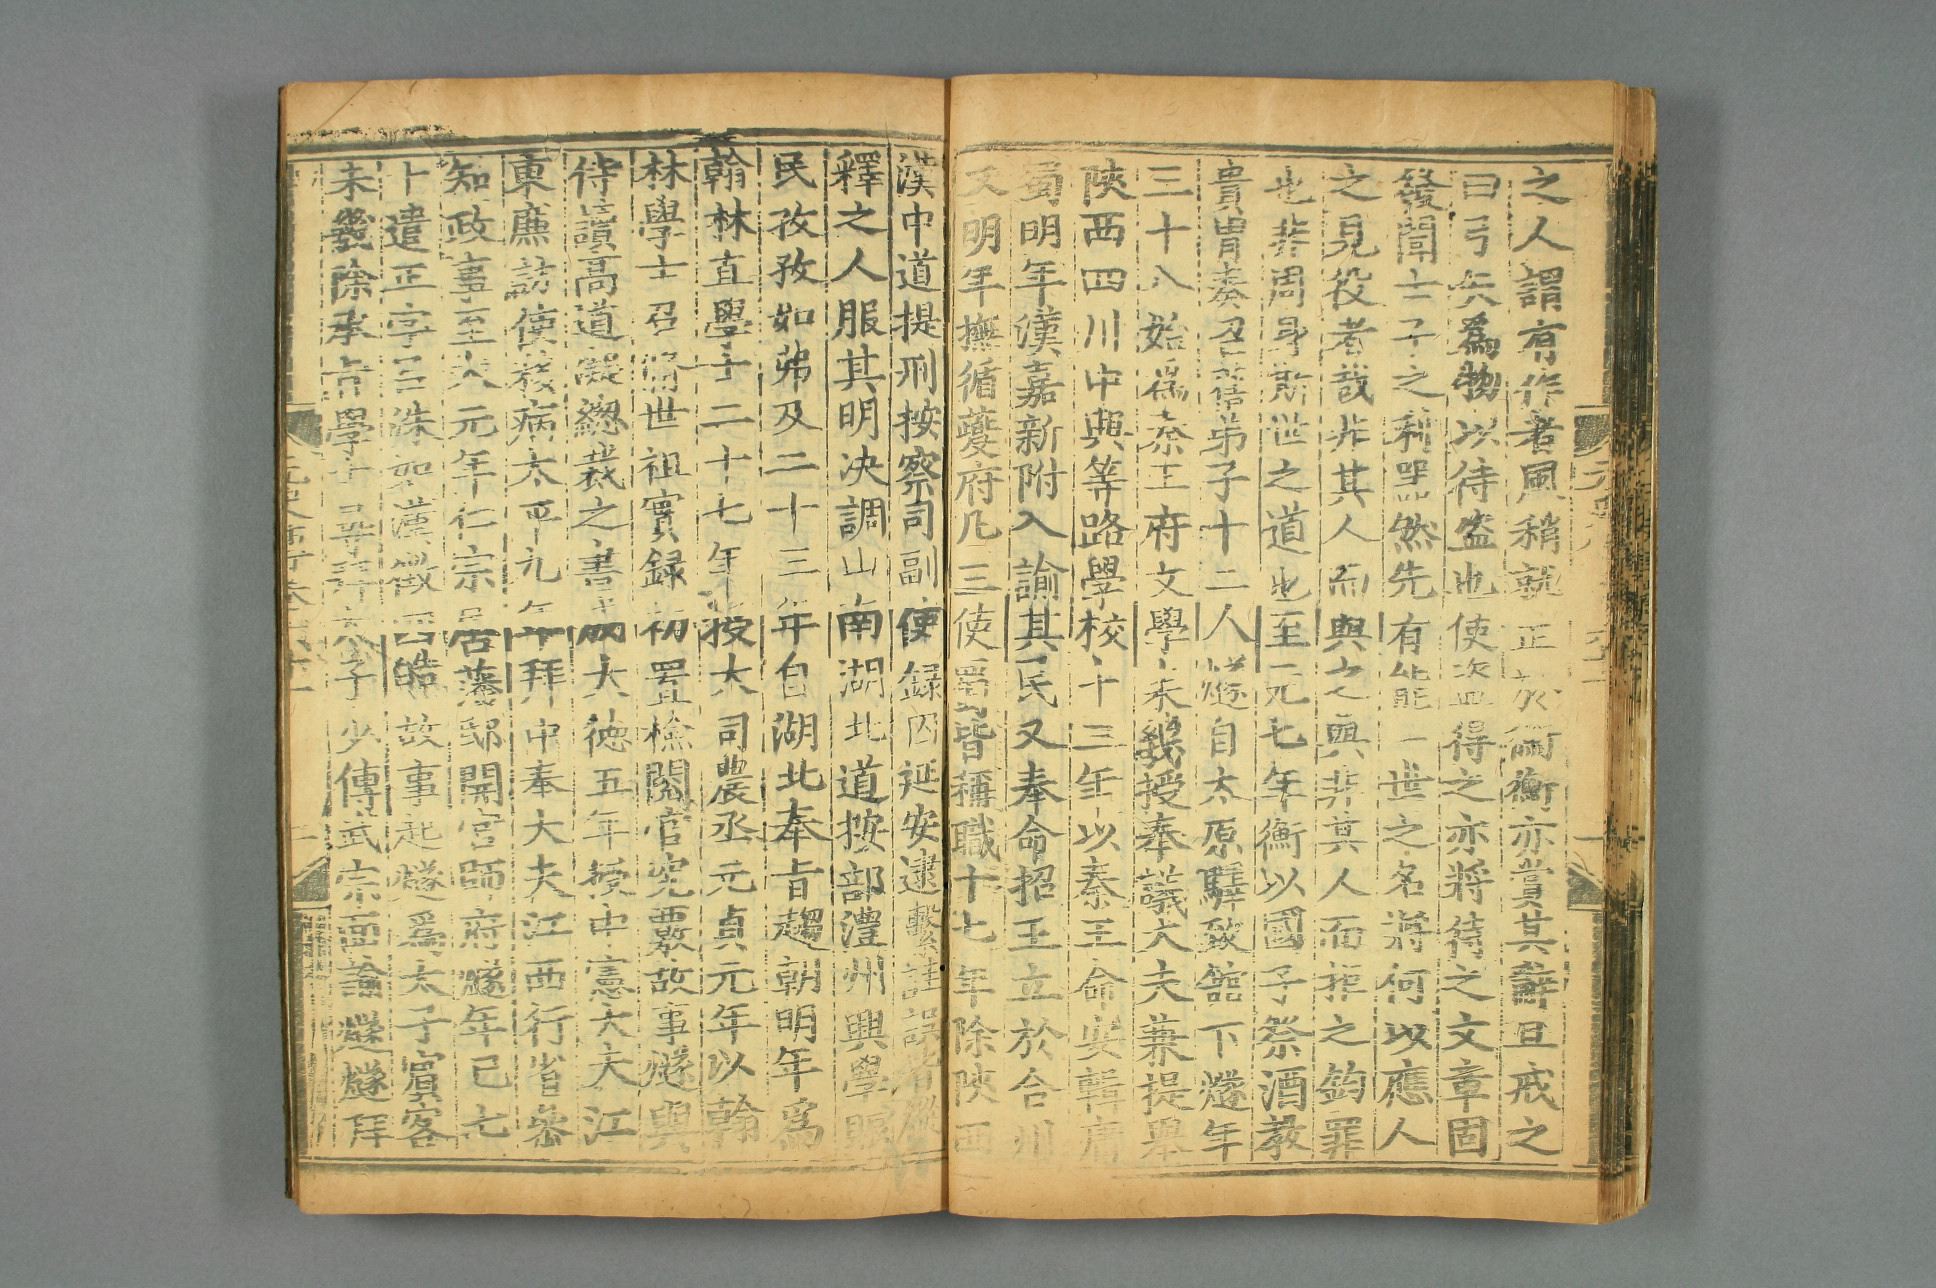 之人謂有作者風稍就正於衡衡亦賞其辭且戒之
曰弓矢爲物以待盜也使盜得之亦將待之文章固
發聞士子之利器然先有能一世之名將何以應人
之見役者哉非其人而與之與非其人而拒之鈞罪
也非周身斯世之道也至元七年衡以國子祭酒教
貴胄奏召舊弟子十二人燧自太原驛致館下燧年
三十八始爲秦王府文學未幾授奉議大夫兼提舉
陝西四川中興等路學校十三年以秦王命安輯庸
蜀明年漢嘉新附入諭其民又奉命招王立於合川
又明年撫循夔府凡三使蜀皆稱職十七年除陝西
漢中道提刑按察司副使錄囚延安逮繫詿誤皆縱
釋之人服其明決調山南湖北道按部澧州興學賑
民孜孜如弗及二十三年自湖北奉旨趨朝明年爲
翰林直學士二十七年授大司農丞元貞元年以翰
林學士召脩世祖實録初置檢閱官究覈故事燧與
侍讀高道凝緫裁之書成大徳五年授中憲大夫江
東廉訪使移病太平九年拜中奉大夫江西行省叅
知政事至大元年仁宗居藩邸開宮師府燧年已七
十遣正字呂洙如漢徵四皓故事起燧爲太子賓客
未幾除承旨學士尋拜太子少傅武宗面諭燧燧拜